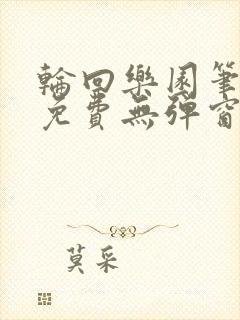 輪回樂園筆
免費無彈窗
莫采